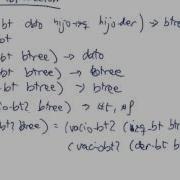 bt dato hijo-izq hijo-der) → btree
bt
bt btree) → dato
bt btree) → btree
bt btree) → btree
io-bt? btree) → #t, #f
bt? btree) = (vacio-bt? (izq-bt b
(vacio-bt? (der-bt b